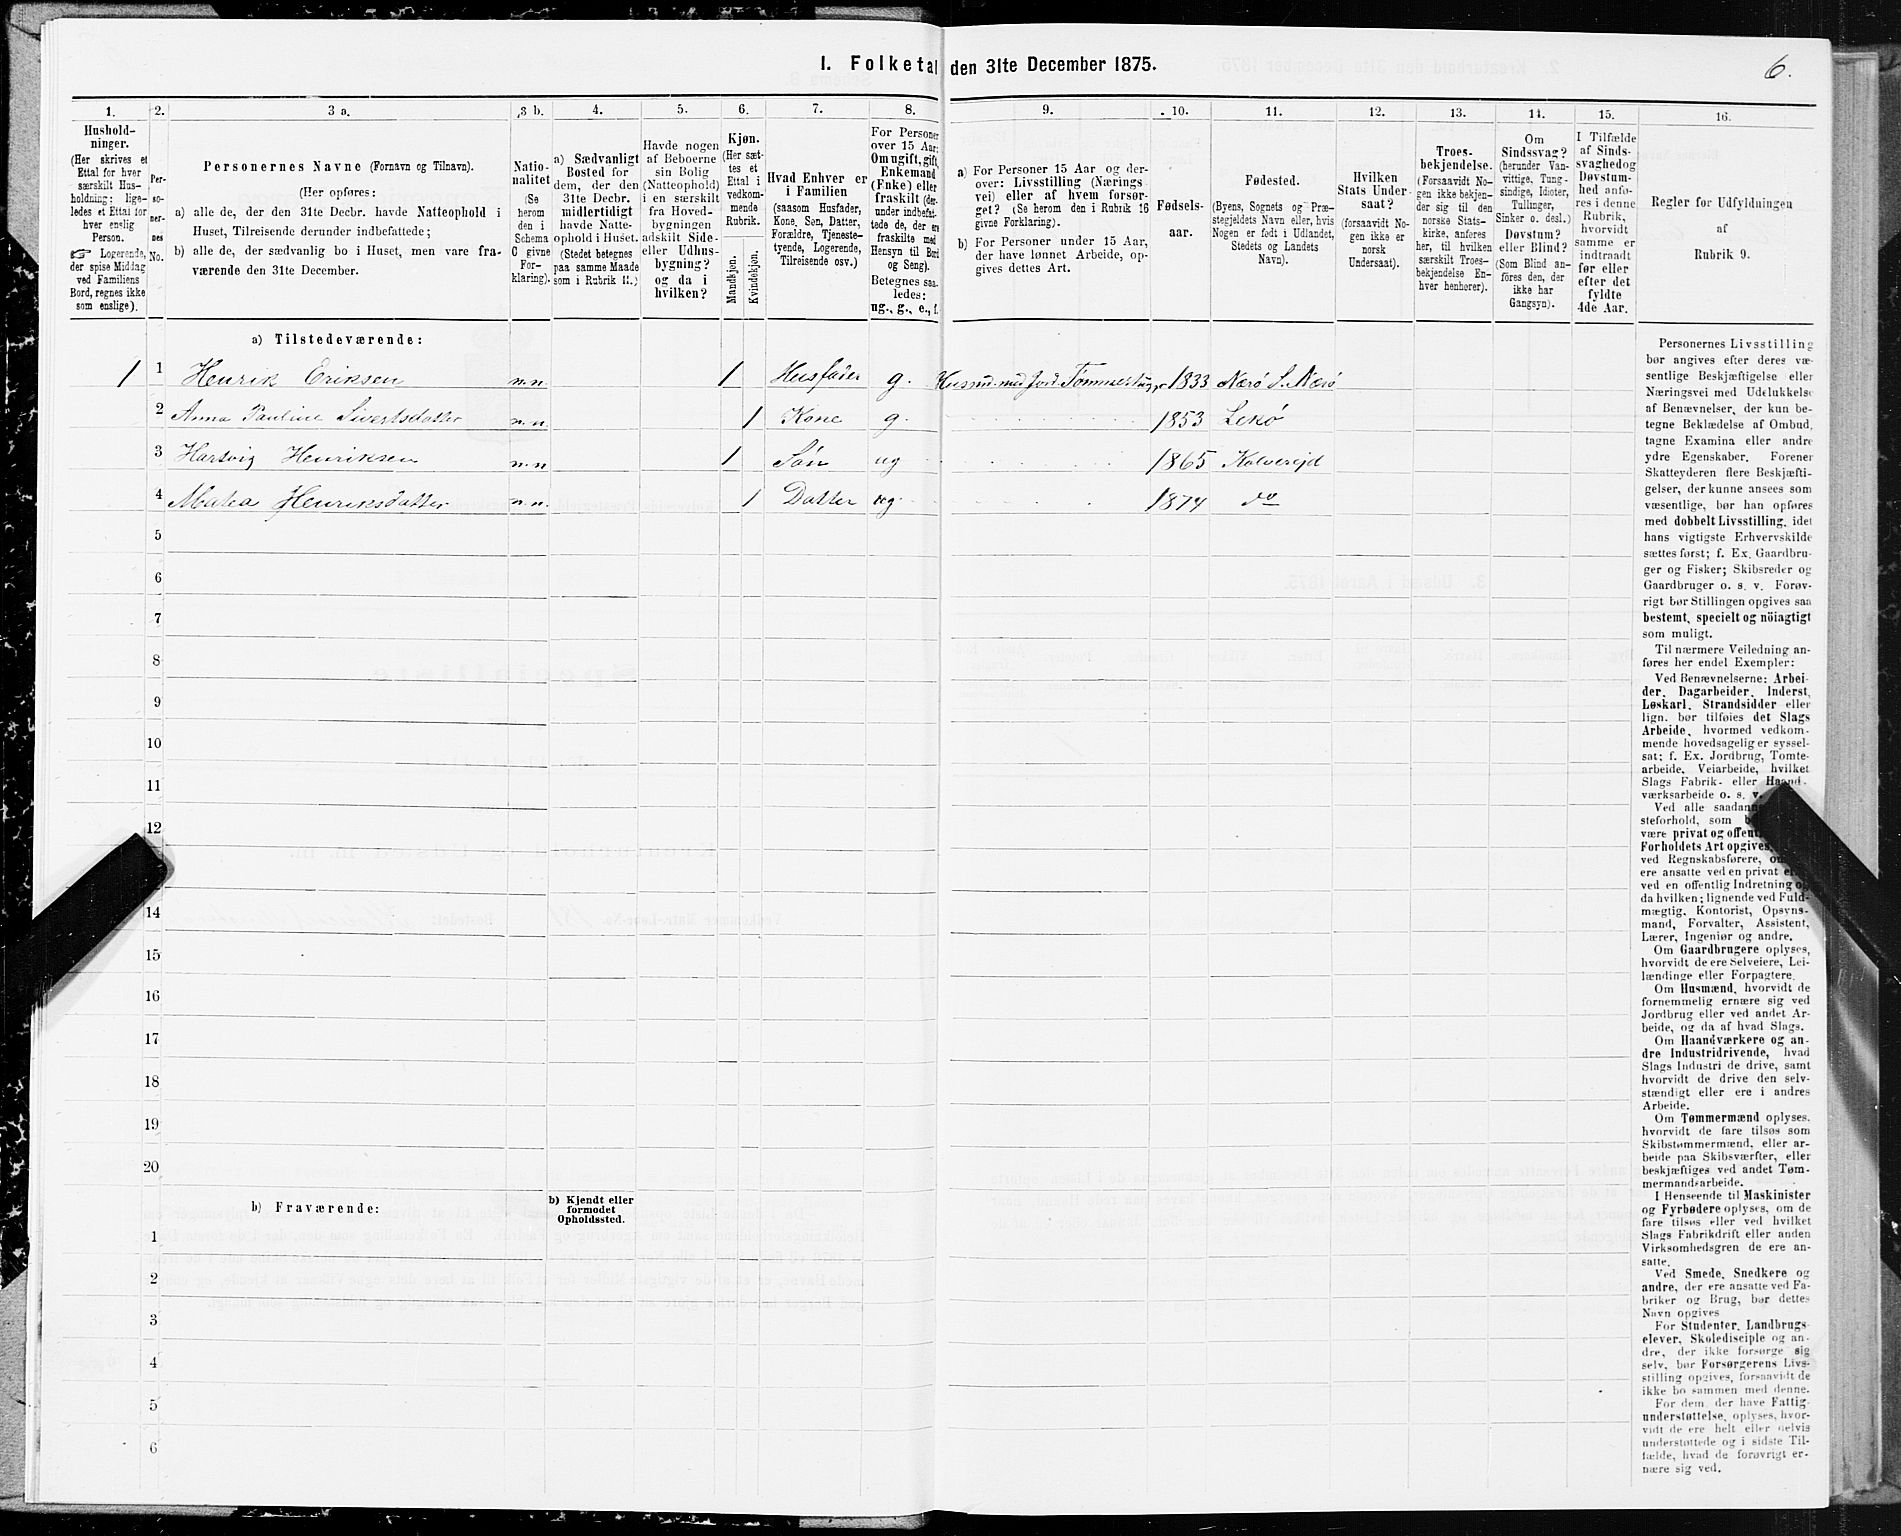 I. Folketal den 31te December 1875.
6.
1. 2. 3 a. 3 b. 4. 5. 6. 7. 8. 9. 10. 11. 12. 13. 14. 15. 16.
Hushold-
ninger.
(Her skrives et
Ettal for hver
særskilt Hus-
holdning; lige-
ledes et Ettal for
hver enslig
Person.
☞ Logerende,
der spise Middag
ved Familiens
Bord, regnes ikke
som enslige).
Per-
so-
ner-
nes
No.
Personernes Navne (Fornavn og Tilnavn).
(Her opføres:
a) alle de, der den 31te Decbr. havde Natteophold i
Huset, Tilreisende derunder indbefattede;
b) alle de, der sædvanlig bo i Huset, men vare fra-
værende den 31te December.
Natio-
nalitet
(Se
herom
den i
Schema
C givne
For-
klaring).
a) Sædvanligt
Bosted for
dem, der den
31te Decbr.
midlertidigt
havde Natte-
ophold i Huset.
(Stedet betegnes
paa samme Maade
som i Rubrik 11.)
Havde nogen
af Beboerne
sin Bolig
(Natteophold)
i en særskilt
fra Hoved-
bygningen
adskilt Side-
eller Udhus-
bygning?
og da i
hvilken?
Kjøn.
(Her sæt-
tes et
Ettal i
vedkom-
mende
Rubrik.
Mandkjøn.
Kvindekjøn.
Hvad Enhver er
i Familien
(saasom Husfader,
Kone, Søn, Datter,
Forældre, Tjeneste-
tyende, Logerende,
Tilreisende osv.)
For Personer
over 15 Aar:
Om ugift, gift,
Enkemand
(Enke) eller
fraskilt (der-
under indbefat-
tede de, der ere
fraskilte med
Hensyn til Bord
og Seng).
Betegnes saa-
ledes:
ug., g., e., f.
a) For Personer 15 Aar og der-
over: Livsstilling (Nærings-
vei) eller af hvem forsør-
get? (Se herom den i Rubrik 16
givne Forklaring).
b) For Personer under 15 Aar,
der have lønnet Arbeide, op-
gives dettes Art.
Fødsels-
aar.
Fødested.
(Byens, Sognets og Præ-
stegjeldets Navn eller, hvis
Nogen er født i Udlandet,
Stedets og Landets
Navn).
Hvilken
Stats Under-
saat?
(forsaavidt No-
gen ikke er
norsk
Undersaat).
Troes-
bekjendelse.
(Forsaavidt No-
gen ikke bekjen-
der sig til den
norske Stats-
kirke, anføres
her, til hvilken
særskilt Troes-
bekjendelse En-
hver henhører).
Om
Sindssvag?
(herunder Van-
vittige, Tung-
sindige, Idioter,
Tullinger,
Sinker o. desl.)
Døvstum?
eller Blind?
(Som Blind an-
føres den, der
ikke har
Gangsyn).
I Tilfælde
af Sinds-
svaghed og
Døvstum-
hed anfø-
res i denne
Rubrik,
hvorvidt
samme er
indtraadt
før eller
efter det
fyldte
4de Aar.
Regler for Udfyldningen
af
Rubrik 9.
a) Tilstedeværende:
1 1 Henrik Eriksen n.n. 1 Husfader g. Husmd. med Jord. Tømmerhugger 1833 Nærø S. Nærø
2 Anna Pauline Sivertsdatter n.n. 1 Kone g. 1853 Lekø
3 Hartvig Henriksen n.n 1 Søn ug 1865 Kolvereid
4 Matea Henriksdatter n.n. 1 Datter ug. 1874 do
5
6
7
8
9
10
11
12
14
15
16
17
18
19
20
b) Fraværende:
b) Kjendt eller
formodet
Opholdssted.
1
2
3
4
5
6
Personernes Livsstilling
bør angives efter deres væ-
sentlige Beskjæftigelse eller
Næringsvei med Udelukkelse
af Benævnelser, der kun be-
tegne Beklædelse af Ombud,
tagne Examina eller andre
ydre Egenskaber. Forener
Skatteyderen flere Beskjæfti-
gelser, der kunne ansees som
væsentlige, bør han opføres
med dobbelt Livsstilling, idet
hans vigtigste Erhvervskilde
sættes først; f. Ex. Gaardbru-
ger og Fisker; Skibsreder og
Gaardbruger o. s. v. Forøv-
rigt bør Stillingen opgives saa
bestemt, specielt og nöiagtigt
som muligt.
Til nærmere Veiledning an-
føres her endel Exempler:
Ved Benævnelserne: Arbei-
der, Dagarbeider, Inderst,
Løskarl, Strandsidder eller
lign. bør tilføies det Slags
Arbeide, hvormed vedkom-
mende hovedsagelig er syssel-
sat; f. Ex. Jordbrug, Tomte-
arbeide, Veiarbeide, hvilket
Slags Fabrik- eller Haand-
værksarbeide o. s. v.
Ved alle saadanne
steforhold, som
være privat og offent
Forholdets Art opgives,
ved Regnskabsførere,
ere ansatte ved en privat
ved en offentlig Indretning og
da hvilken; lignende ved Fuld-
mægtig, Kontorist, Opsyns-
mand, Forvalter, Assistent,
Lærer, Ingeniør og andre.
Om Gaardbrugere oplyses,
hvorvidt de ere Selveiere, Lei-
lændinge eller Forpagtere.
Om Husmænd, hvorvidt de
fornemmelig ernære sig ved
Jordbrug eller ved andet Ar-
beide, og da af hvad Slags.
Om Haandværkere og an-
dre Industridrivende, hvad
Slags Industri de drive, samt
hvorvidt de drive den selv-
stændigt eller ere i andres
Arbeide.
Om Tømmermænd oplyses,
hvorvidt de fare tilsøs som
Skibstømmermænd, eller ar-
beide paa Skibsværfter, eller
beskjæftiges ved andet Tøm-
mermandsarbeide.
I Henseende til Maskinister
og Fyrbødere oplyses, om de
fare tilsøs eller ved hvilket
Slags Fabrikdrift eller anden
Virksomhedsgren de ere an-
satte.
Ved Smede, Snedkere og
andre, der ere ansatte ved Fa-
briker og Brug, bør dettes
Navn opgives
For Studenter, Landbrugs-
elever, Skoledisciple og an-
dre, der ikke forsørge sig
selv, bør Forsørgerens Livs-
stilling opgives, forsaavidt de
ikke bo sammen med denne.
For dem, der have Fattig-
understøttelse, oplyses, hvor-
vidt de ere helt eller delvis
understøttede og i sidste Til-
fælde, hvad de forøvrigt er-
nære sig ved.